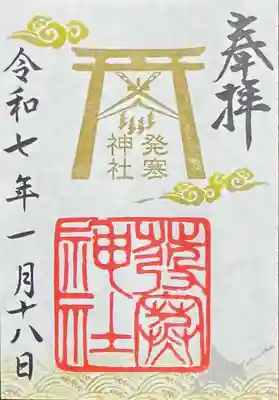 奉拝
発寒
神社
発寒
神社
令和七年一月十八日